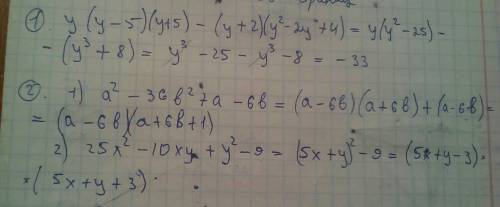 1. y (y-5)(y+5) - (y+2)(y²-2y+4) = y(y²-25) -
- (y³+8) = y³ - 25 - y³ - 8 = -33
2. 1) a² - 36b² + a - 6b = (a-6b)(a+6b) + (a-6b) =
= (a-6b)(a+6b+1)
2) 25x² - 10xy + y² - 9 = (5x+y)² - 9 = (5x+y-3) ×
× (5x+y+3)